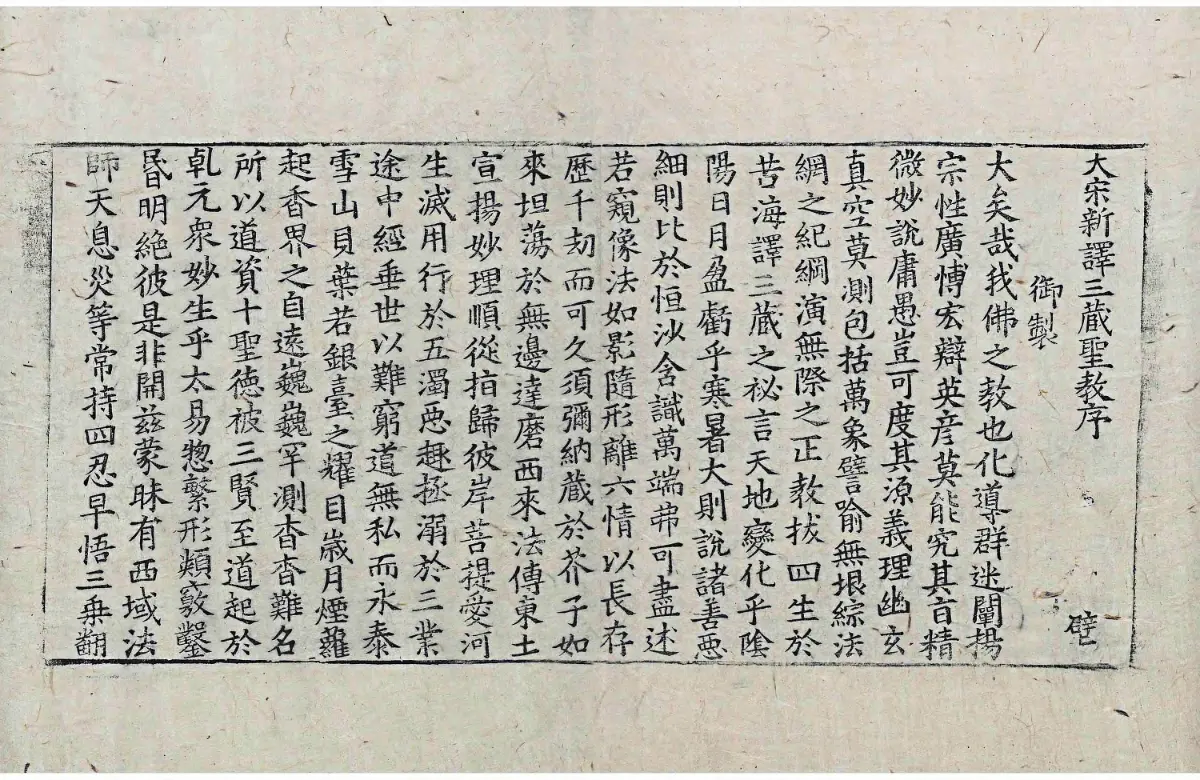 大宋新譯三藏聖教序
壁
御製
大矣哉我佛之教也化導群迷闡揚
宗性廣愽宏辯英彦莫能究其旨精
微妙說庸愚豈可度其源義理幽玄
真空莫測包括萬象譬喻無垠綜法
網之紀綱演無際之正教拔四生於
苦海譯三藏之祕言天地變化乎陰
陽日月盈虧乎寒暑大則說諸善惡
細則比於恒沙含識萬端弗可盡述
若窺像法如影隨形離六情以長存
歷千劫而可久須彌納藏於芥子如
來坦蕩於無邊達磨西來法傳東土
宣揚妙理順從指歸彼岸菩提愛河
生滅用行於五濁惡趣拯溺於三業
途中經垂世以難窮道無私而永泰
雪山貝葉若銀臺之耀目歲月煙蘿
起香界之自遠巍巍罕測杳杳難名
所以道資十聖德被三賢至道起於
乹元衆妙生乎太易惣繫形類竅鑿
昏明絕彼是非開兹蒙昧有西域法
師天息災等常持四忍早悟三乗翻